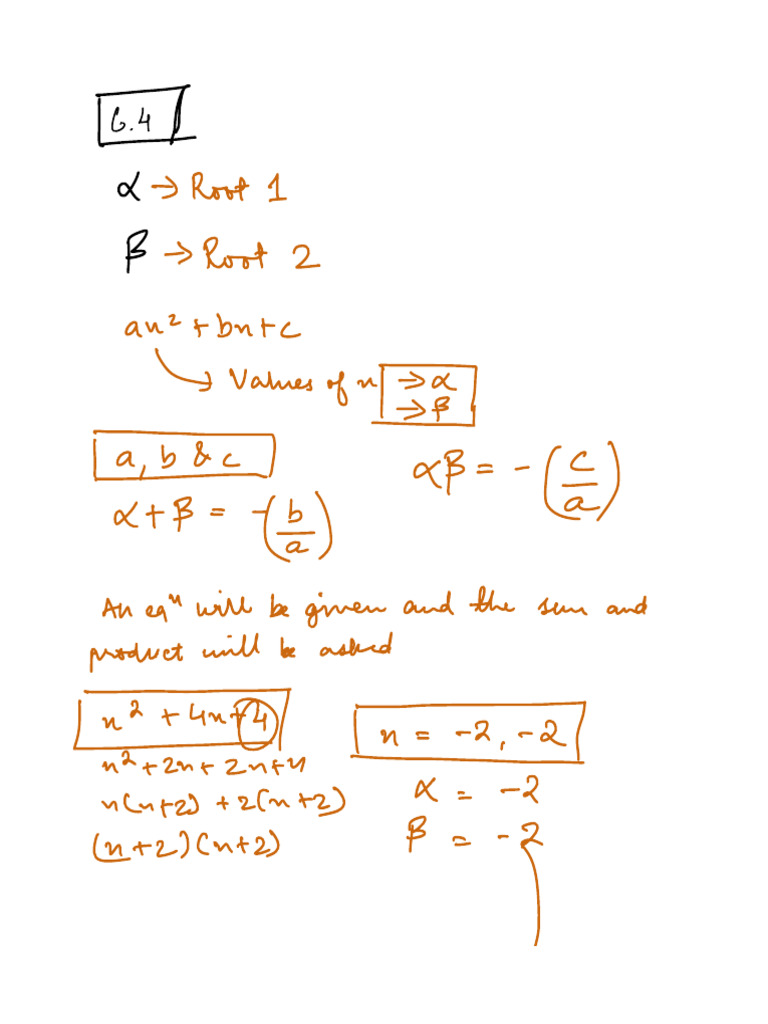 6.4
α → Root 1
β → Root 2
ax² + bx + c
→ Values of x → α
→ β
a, b & c
αβ = -(c/a)
α + β = -(b/a)
An eqⁿ will be given and the sum and
product will be asked
x² + 4x + 4
x = -2, -2
x² + 2x + 2x + 4
x(x+2) + 2(x+2)
(x+2)(x+2)
α = -2
β = -2